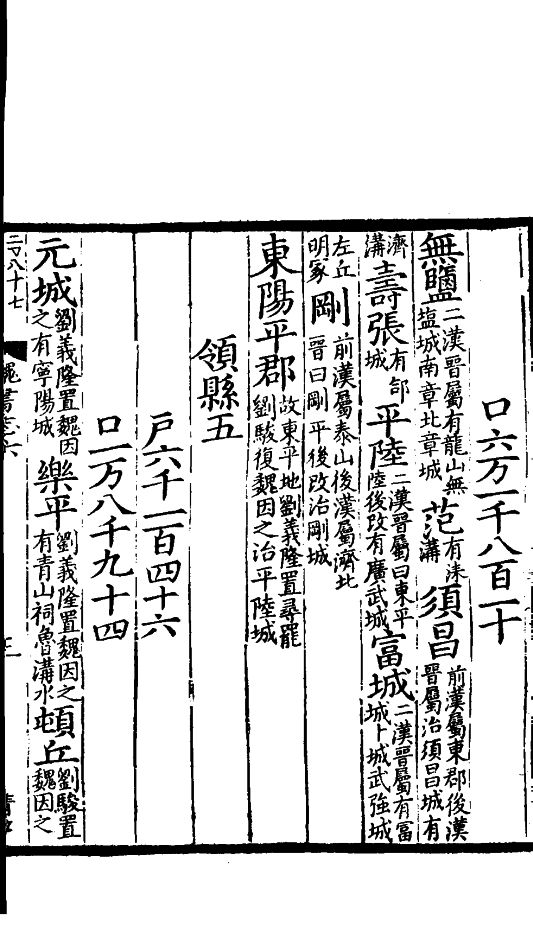 口六万一千八百一十
無鹽二漢晉屬有龍山無塩城南章北章城范有洙溝須昌前漢屬東郡後漢晉屬治須昌城有
濟溝壽張有郈城平陸二漢晉屬曰東平陸後改有廣武城富城二漢晉屬有富城城卜城武強城
左丘明冢剛前漢屬泰山後漢屬濟北晉曰剛平後改治剛城
東陽平郡故東平地劉義隆置尋罷劉駿復魏因之治平陸城
領縣五
戶六千一百四十六
口一万八千九十四
元城劉義隆置魏因之有寧陽城樂平劉義隆置魏因之有青山祠魯溝水頓丘劉駿置魏因之
八十七
魏書志六